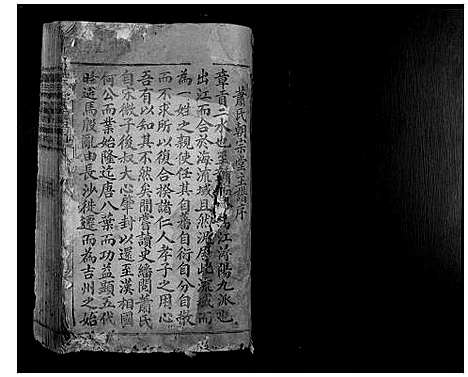 蕭氏朝宗堂主譜序
章貢二水也至江潯陽九派也
出江而合於海流域且然況屬此流域而
為一姓之親使任其自蕃自衍自分自散
而不求所以復合揆諸仁人孝子之用心
吾有以知其不然矣間嘗讀史繙閱蕭氏
自宋微子後叔大心肇封以還至漢相國
何公而葉始隆迄唐八葉而功益顯五代
時遭馬殷亂由長沙徙遷而為吉州之始